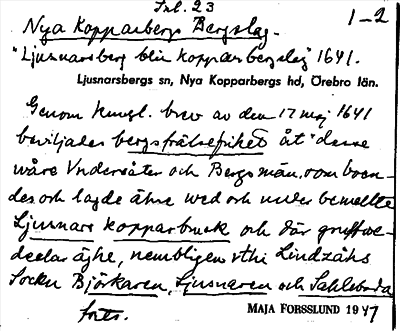 Inl. 23
1-2
Nya Kopparbergs Bergslag.
"Ljusnarsberg blir kopparbergslag" 1641.
Ljusnarsbergs sn, Nya Kopparbergs hd, Örebro län.
Genom kungl. brev av den 17 maj 1641
beviljades bergsfrälsefrihet åt "desse
wåre Vndersåter och Bergsmän, som boen-
des och lagde ähre wed och under bemellte
Ljusnars kopparbruck och där
äghe, nembligen vthi Lindzåhs
Socken Björkaren, Ljusnaren och
forts.
MAJA FORSSLUND 1947